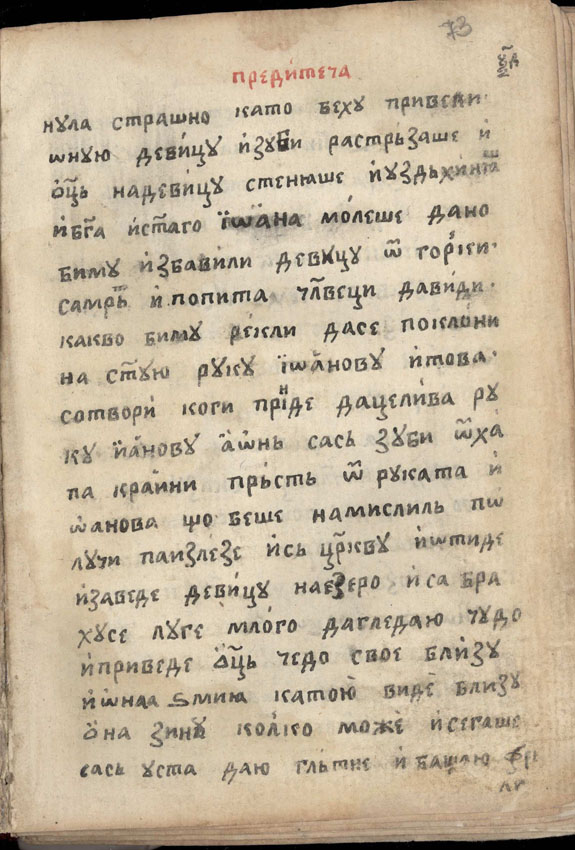 73
предитеча
нула страшно като беху привели
ѡную девицу изуби растрьзаше и
ѻц҃ь надевицу стенꙗше иуздьхи
ибг҃а ист҃аго їѡана молеше дано
бимꙋ избавили девицꙋ ѿ горкеи
самрть ипопита чл҃веци давиди
какво бимꙋ рекли дасе поклони
на ст҃ꙋю рꙋкꙋ їѡановꙋ итова
сотвори коги прїиде дацелива рꙋ
кꙋ їѡановꙋ аѡнь сась зꙋби ѿха
па краини прьсть ѿ рꙋката и
ѡанова що беше намислиль пѡ
лꙋчи паизлезе ись цр҃квꙋ иѡтиде
изаведе девицꙋ наезеро иса бра
хꙋсе лꙋге млого дагледаю чꙋдо
иприведе ѻц҃ь чедо свое близꙋ
иѡнаа ѕмиꙗ катою виде близꙋ
ѻна зинꙋ колко може исегаше
сась ꙋста даю гльтне ибащаю